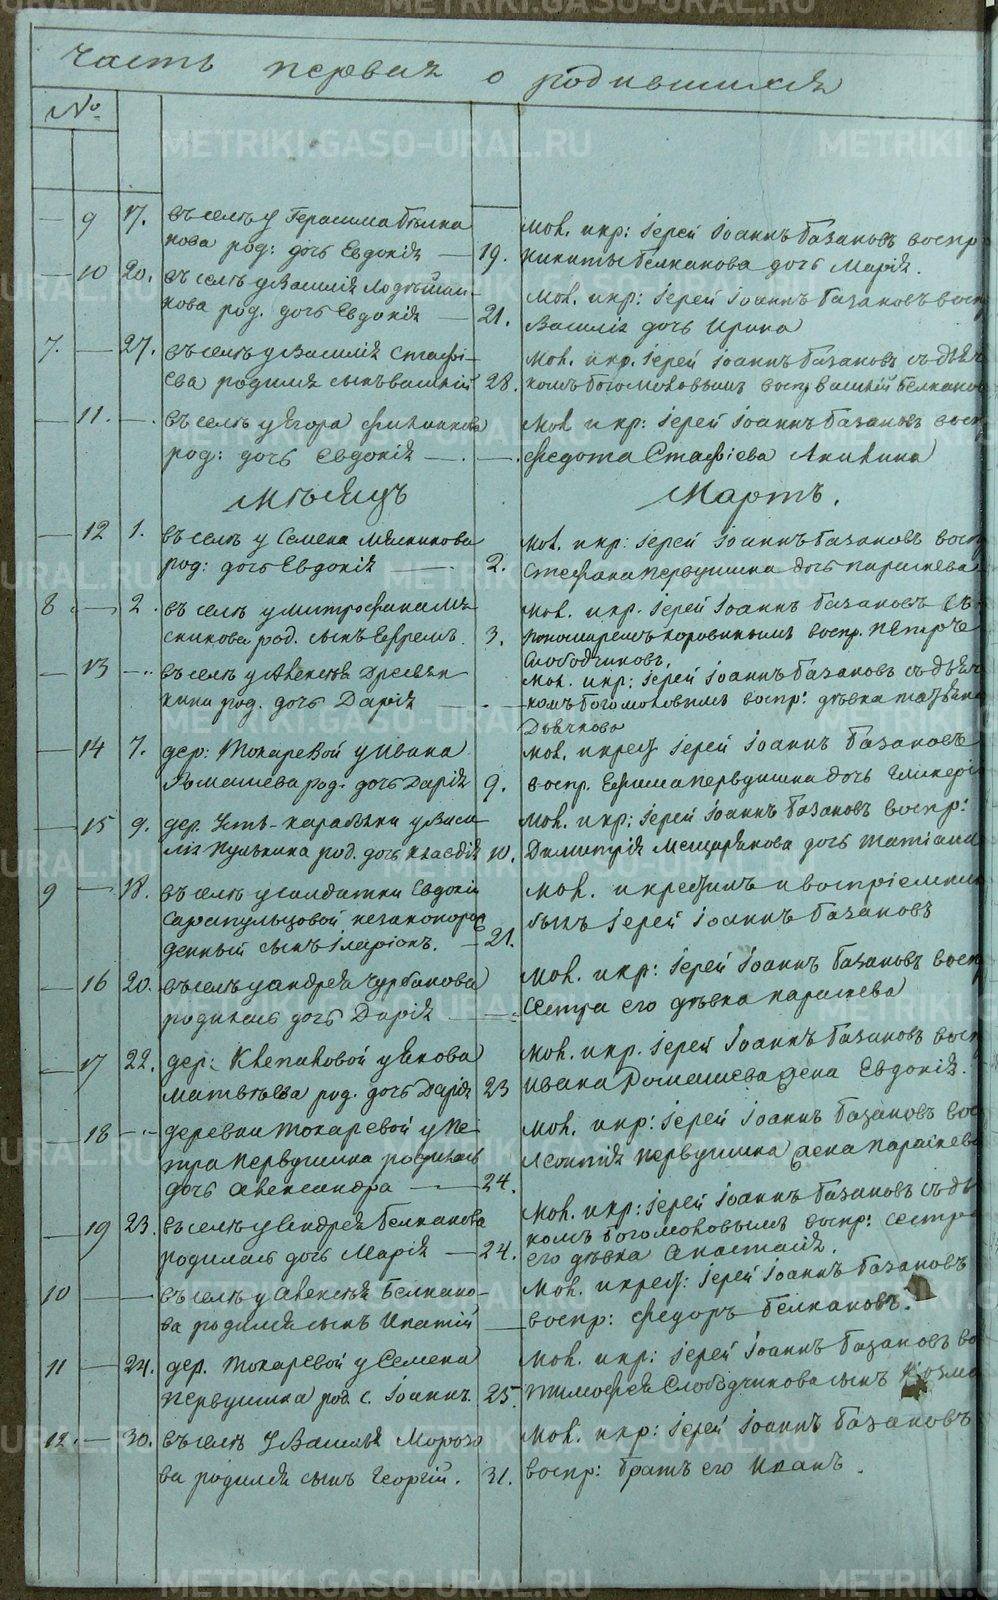 Часть первая о родившихся
№
— 9 17. въ селѣ у Герасима Бѣлка
нова род: дочь Евдокія — 19.
мол. и кр: Іерей Іоаннъ Базановъ воспр
Никиты Белканова дочь Марія.
— 10 20. въ селѣ у Василія
кова род. дочь Евдокія — 21.
мол. и кр: Іерей Іоаннъ Базановъ восп
Василія дочь Ирина
7. — 27. въ селѣ у Василія Стафі-
ева родился сынъ Василій 28.
мол. и кр. Іерей Іоаннъ Базановъ съ дьяч
комъ Богомоловымъ воспр Василій Белканов
— 11. — въ селѣ у Егора
род: дочь Евдокія — . — .
мол и кр: Іерей Іоаннъ Базановъ восп
Федота Стафіева Акилина
Мѣсяцъ Мартъ.
— 12 1. въ селѣ у Семена Мясникова
род: дочь Евдокія — 2.
мол. и кр: Іерей Іоаннъ Базановъ восп
Стефана Первушина дочь Параскева
8 — 2. въ селѣ у Митрофана Мя
сникова род. сынъ Ефремъ. 3.
мол. и кр. Іерей Іоаннъ Базановъ съ
пономаремъ Коровинымъ воспр. Петръ
Слободчиковъ.
— 13 — въ селѣ у Алексѣя Древян
кина род. дочь Дарія — . —
мол. и кр: Іерей Іоаннъ Базановъ съ дьяч
комъ Богомоловымъ воспр: дѣвка Татьяна
Дьячкова
— 14 7. дер: Токаревой у Ивана
Ромашева род. дочь Дарія 9.
мол. и крещ. Іерей Іоаннъ Базановъ
воспр. Ефима Первушина дочь Гликерія
— 15 9. дер. Усть-Карабаки у Васи
лія Пулькина род. дочь Клавдія 10.
мол. и кр: Іерей Іоаннъ Базановъ воспр:
Димитрія Мещерякова дочь Татіана
9 — 18. въ селѣ у солдатки Евдокіи
Сарапульцовой незаконорож
денный сынъ Иларіонъ. — 21.
мол. и крестилъ и воспріемник
былъ Іерей Іоаннъ Базановъ
— 16 20. въ селѣ у Андрея Чурбанова
родилась дочь Дарія . —
мол. и кр: Іерей Іоаннъ Базановъ восп
сестра его дѣвка Параскева
— 17 22. дер: Клепаловой у Якова
Матвѣева род. дочь Дарія 23
мол. и кр. Іерей Іоаннъ Базановъ восп
Ивана Ромашева жена Евдокія.
— 18 — деревни Токаревой у Пе-
тра Первушина родилась
дочь Александра — 24.
мол. и кр: Іерей Іоаннъ Базановъ вос
Леонтія Первушина жена Параскева
— 19 23. въ селѣ у Андрея Белканова
родилась дочь Марія — 24.
мол. и кр: Іерей Іоаннъ Базановъ съ дь
комъ Богомоловымъ воспр: сестра
его дѣвка Анастасія.
10 — — въ селѣ у Алексѣя Белкано-
ва родился сынъ Ипатій —
мол. и крещ: Іерей Іоаннъ Базановъ
воспр: Федоръ Белкановъ.
11 — 24. дер. Токаревой у Семена
Первушина род. с. Іоаннъ. 25.
мол. и кр: Іерей Іоаннъ Базановъ во
Тимофея Слободчикова сынъ Козма
12. — 30. въ селѣ у Василья Морозо
ва родился сынъ Георгій. 31.
мол. и кр: Іерей Іоаннъ Базановъ
воспр: братъ его Иванъ.
METRIKI.GASO-URAL.RU